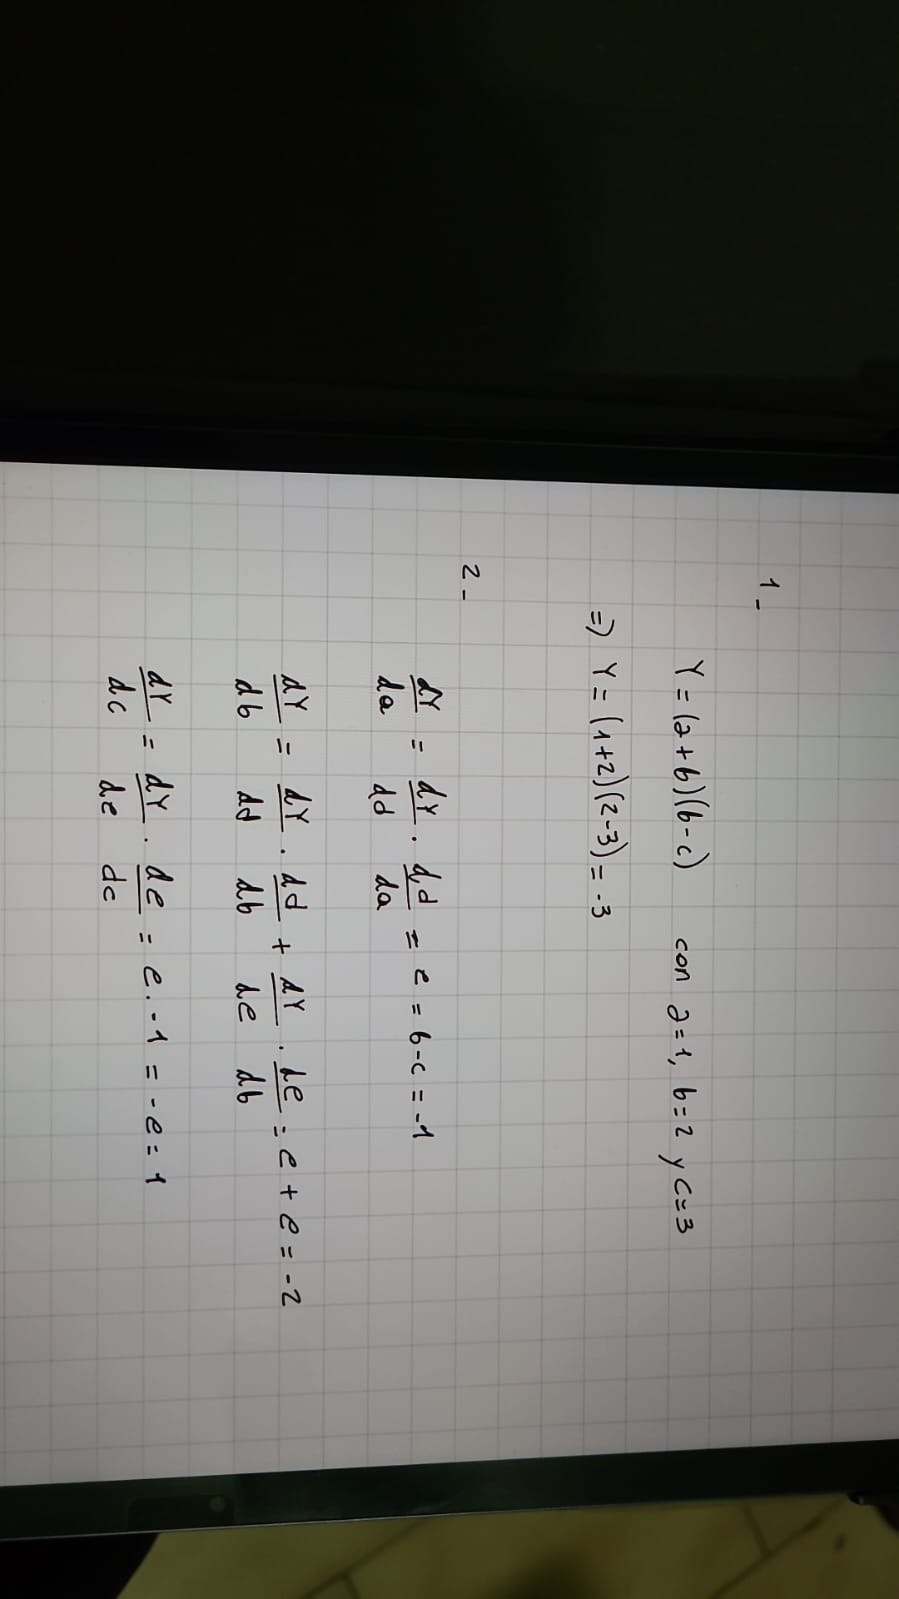 1-
Y = (a+b)(b-c) con a=1, b=2 y c=3
=> Y = (1+2)(2-3) = -3
2-
dY/da = dY/dd · dd/da = e = b-c = -1
dY/db = dY/dd · dd/db + dY/de · de/db = e + e = -2
dY/dc = dY/de · de/dc = e · -1 = -e = 1